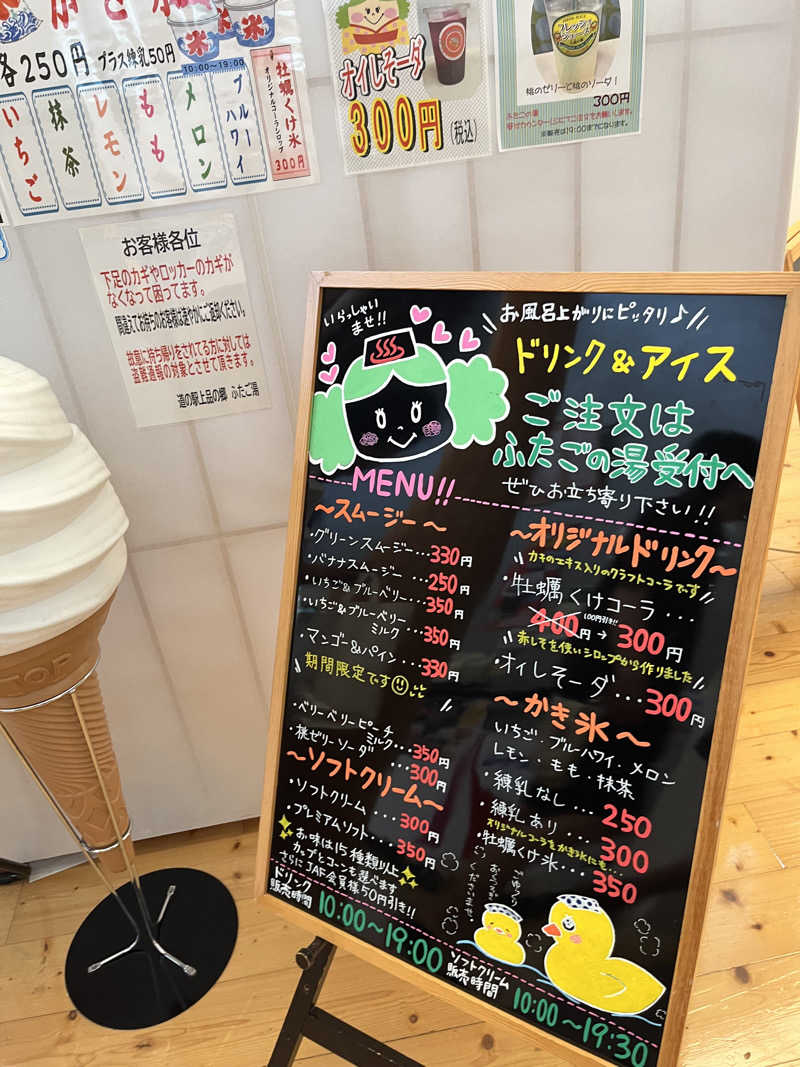 かき氷
各250円 プラス練乳50円
氷
氷
10:00〜19:00
いちご
抹茶
レモン
もも
メロン
ブルーハワイ
牡蠣くけ氷
オリジナルコーラシロップ
300円
オイしそーダ
300円(税込)
桃のゼリーと桃のソーダ!
300円
※販売は19:00までになります。
お客様各位
下足のカギやロッカーのカギが
なくなって困ってます。
間違えてお持ちのお客様は速やかにご返却ください。
故意に持ち帰りをされてる方に対しては
盗難通報の対象とさせて頂きます。
道の駅上品の郷 ふたご湯
TOP
いらっしゃい
ませ!!
お風呂上がりにピッタリ♪
ドリンク&アイス
ご注文は
ふたごの湯受付へ
ぜひお立ち寄り下さい!!
MENU!!
〜スムージー〜
・グリーンスムージー…330円
・バナナスムージー…250円
・いちご&ブルーベリー…350円
・いちご&ブルーベリー
ミルク…350円
・マンゴー&パイン…330円
期間限定です
・ベリーベリーピーチ
ミルク…350円
・桃ゼリーソーダ…300円
〜ソフトクリーム〜
・ソフトクリーム…300円
・プレミアムソフト…350円
お味は15種類以上
カップとコーンも選べます
さらにJAF会員様50円引き!!
〜オリジナルドリンク〜
カキのエキス入りのクラフトコーラです
・牡蠣くけコーラ…
400円→300円
100円引き!!
赤しそを使いシロップから作りました
・オイしそーダ…300円
〜かき氷〜
いちご・ブルーハワイ・メロン
レモン・もも・抹茶
・練乳なし…250
・練乳あり…300
オリジナルコーラをかき氷にも…
・牡蠣くけ氷…350
ごゆっくり
おくつろぎ
くださいませ。
ドリンク
販売時間
10:00〜19:00
ソフトクリーム
販売時間
10:00〜19:30